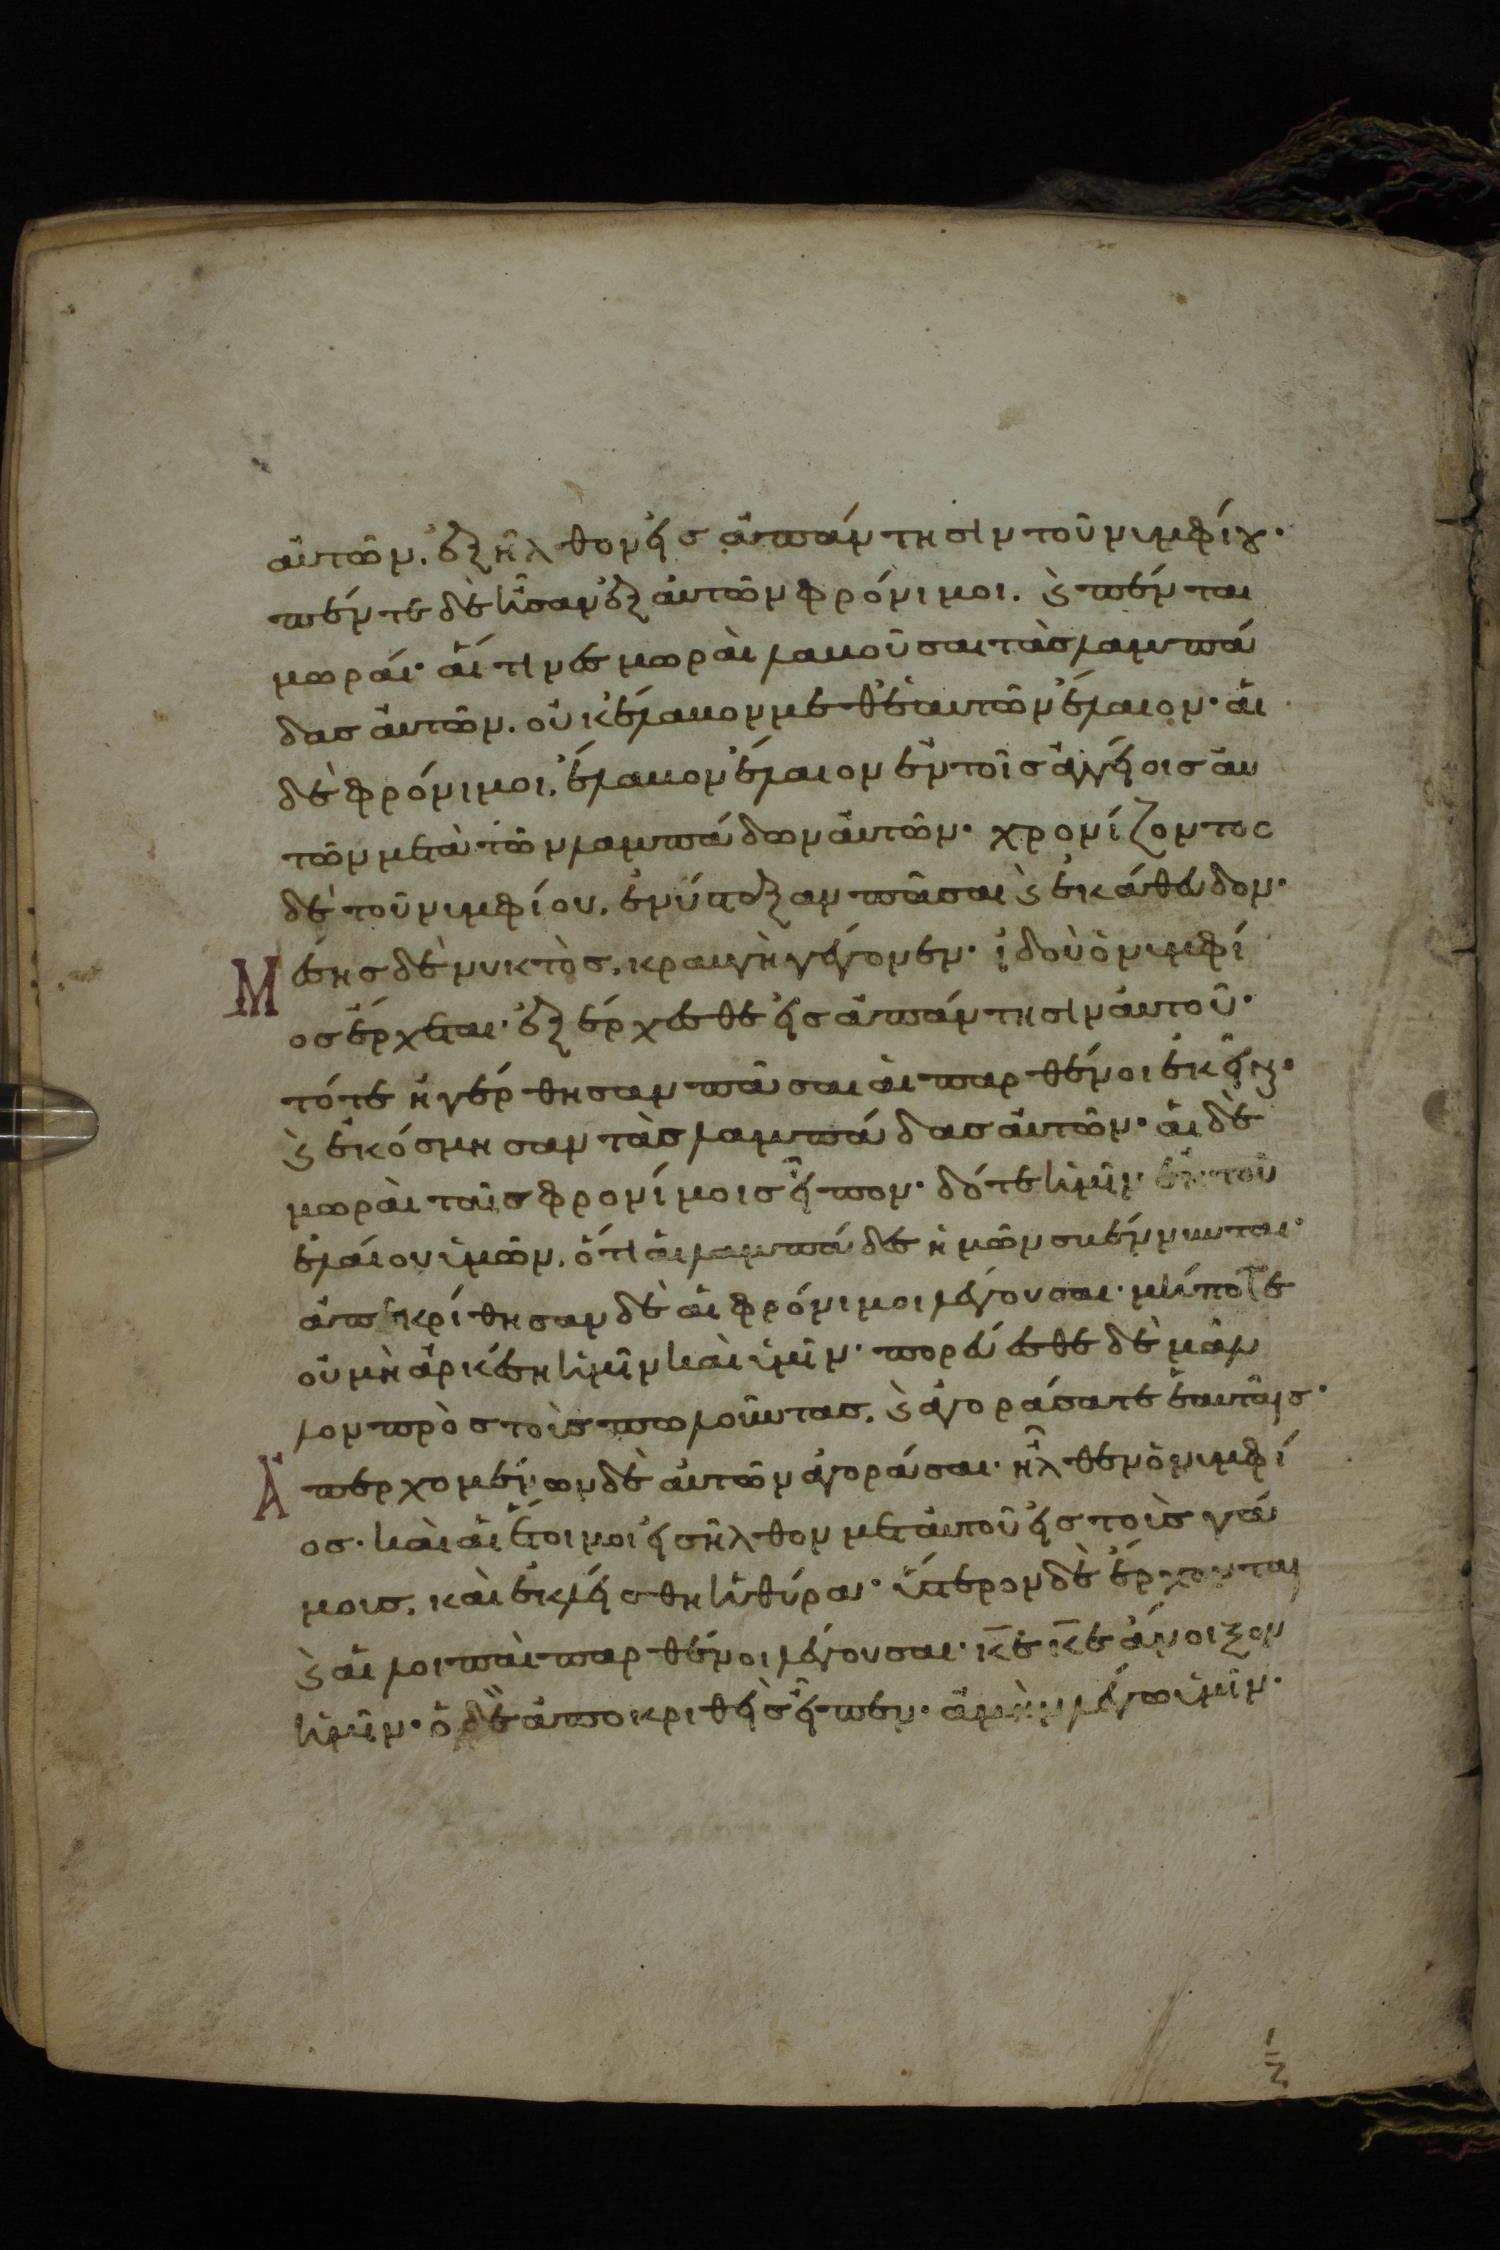 αὐτῶν. ἐξῆλθον εἰς ἀπάντησιν τοῦ νιμφίου·
πέντε δὲ ἦσαν ἐξ αὐτῶν φρόνιμοι. ϗ πένται
μωραί· αἵτινες μωραὶ λαβοῦσαι τὰς λαμπά
δας αὐτῶν. οὐκ ἔλαβον μεθ' ἑαυτῶν ἔλαιον· αἱ
δὲ φρόνιμοι, ἔλαβον ἔλαιον ἐν τοῖς ἀγγείοις αὐ
τῶν μετὰ τῶν λαμπάδων αὐτῶν· χρονίζοντος
δὲ τοῦ νιμφίου, ἐνύσταξαν πᾶσαι ϗ ἐκάθευδον·
Μέσης δὲ νυκτὸς, κραυγὴ γέγονεν· ἰδοὺ ὁ νυμφί
ος ἔρχεται· ἐξέρχεσθε εἰς ἀπάντησιν αὐτοῦ·
τότε ἠγέρθησαν πᾶσαι αἱ παρθένοι ἐκεῖναι·
ϗ ἐκόσμησαν τὰς λαμπάδας αὐτῶν· αἱ δὲ
μωραὶ ταῖς φρονίμοις εἶπον· δότε ἡμῖν ἐκ τοῦ
ἐλαίου ὑμῶν, ὅτι αἱ λαμπάδες ἡμῶν σβέννυνται·
ἀπεκρίθησαν δὲ αἱ φρόνιμοι λέγουσαι· μήποτε
οὐ μὴ ἀρκέση ἡμῖν καὶ ὑμῖν· πορεύεσθε δὲ μᾶλ
λον πρὸς τοὺς πωλοῦντας, ϗ ἀγοράσατε ἑαυταῖς·
Ἀπερχομένων δὲ αὐτῶν ἀγοράσαι· ἦλθεν ὁ νυμφί
ος· καὶ αἱ ἕτοιμοι εἰσῆλθον μετ' αὐτοῦ εἰς τοὺς γά
μους, καὶ ἐκλείσθη ἡ θύρα· ὕστερον δὲ ἔρχονται
ϗ αἱ λοιπαὶ παρθένοι λέγουσαι· κε κε ἄνοιξον
ἡμῖν· ὁ δὲ ἀποκριθεὶς εἶπεν· ἀμὴν λέγω ὑμῖν·